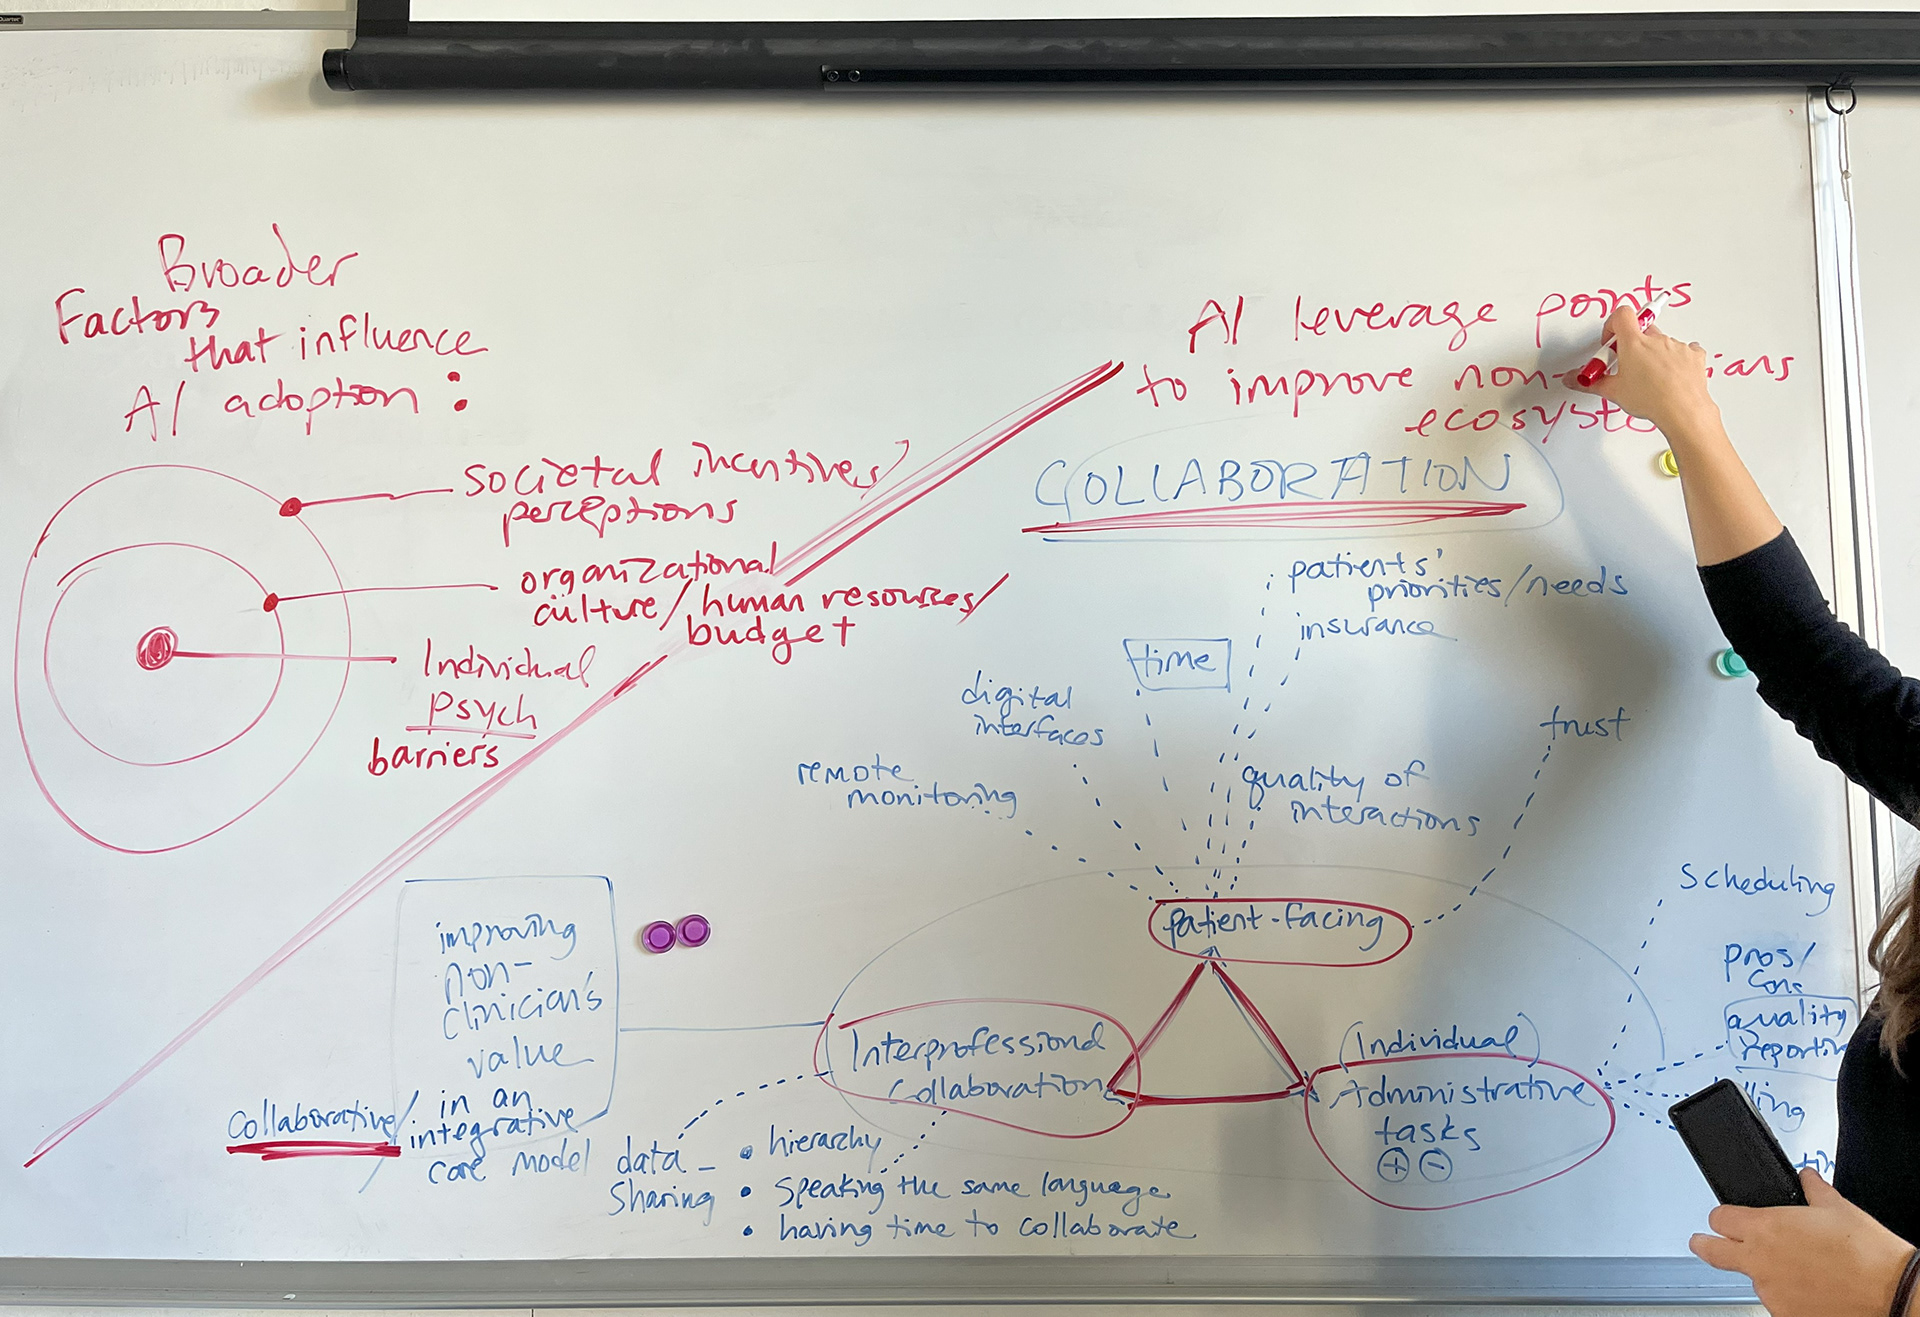 Broader
Factors
that influence
AI adoption:
societal incentives/
perceptions
organizational
culture/human resources/
budget
Individual
Psych
barriers
AI leverage points
to improve non-
ecosyste
COLLABORATION
patients'
priorities/needs
insurance
time
digital
interfaces
remote
monitoring
quality of
interactions
trust
patient-facing
Interprofessional
Collaboration
(Individual)
Administrative
tasks
+ -
Scheduling
pros/
cons
quality
reportin
improving
non-
clinician's
value
in an
Collaborative/integrative
care model
data
sharing
• hierarchy
• Speaking the same language
• having time to collaborate